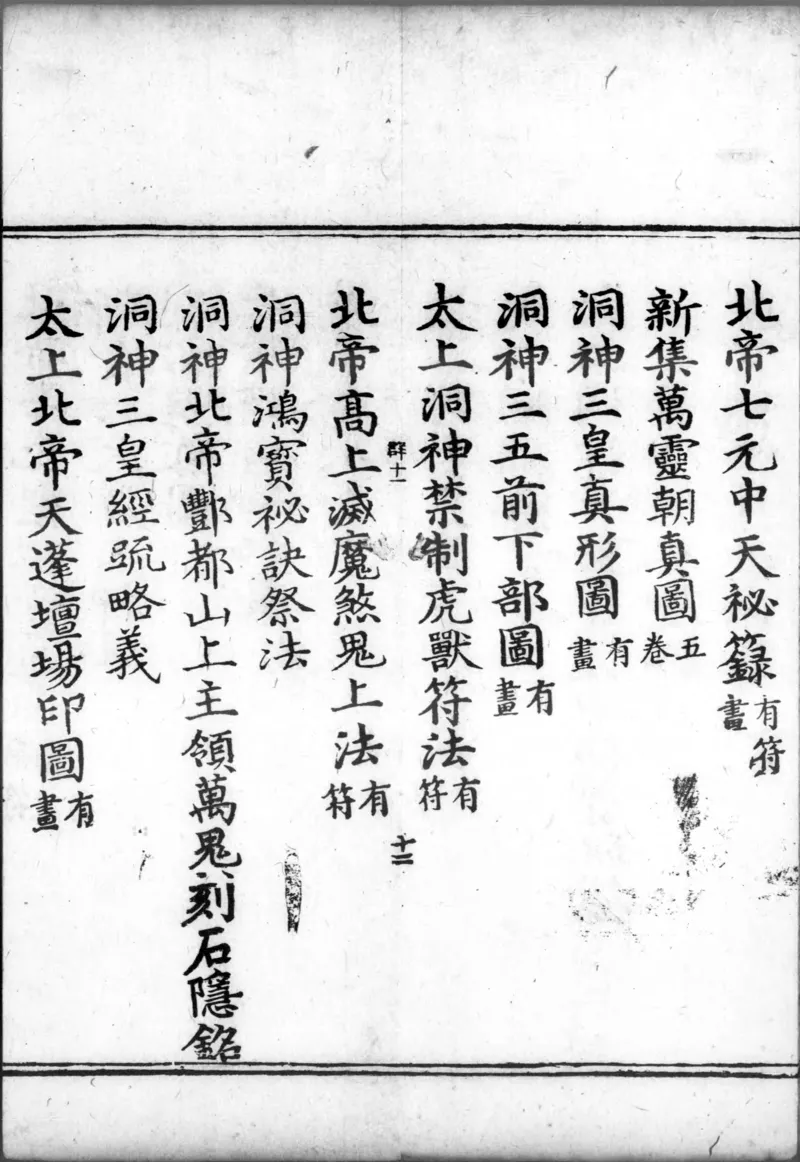 北帝七元中天祕籙有符畫
新集萬靈朝真圖五卷
洞神三皇真形圖有畫
洞神三五前下部圖有畫
太上洞神禁制虎獸符法有符
群十一
十二
北帝高上滅魔煞鬼上法有符
洞神鴻寶祕訣祭法
洞神北帝酆都山上主領萬鬼刻石隱銘
洞神三皇經䟽略義
太上北帝天蓬壇場印圖有畫